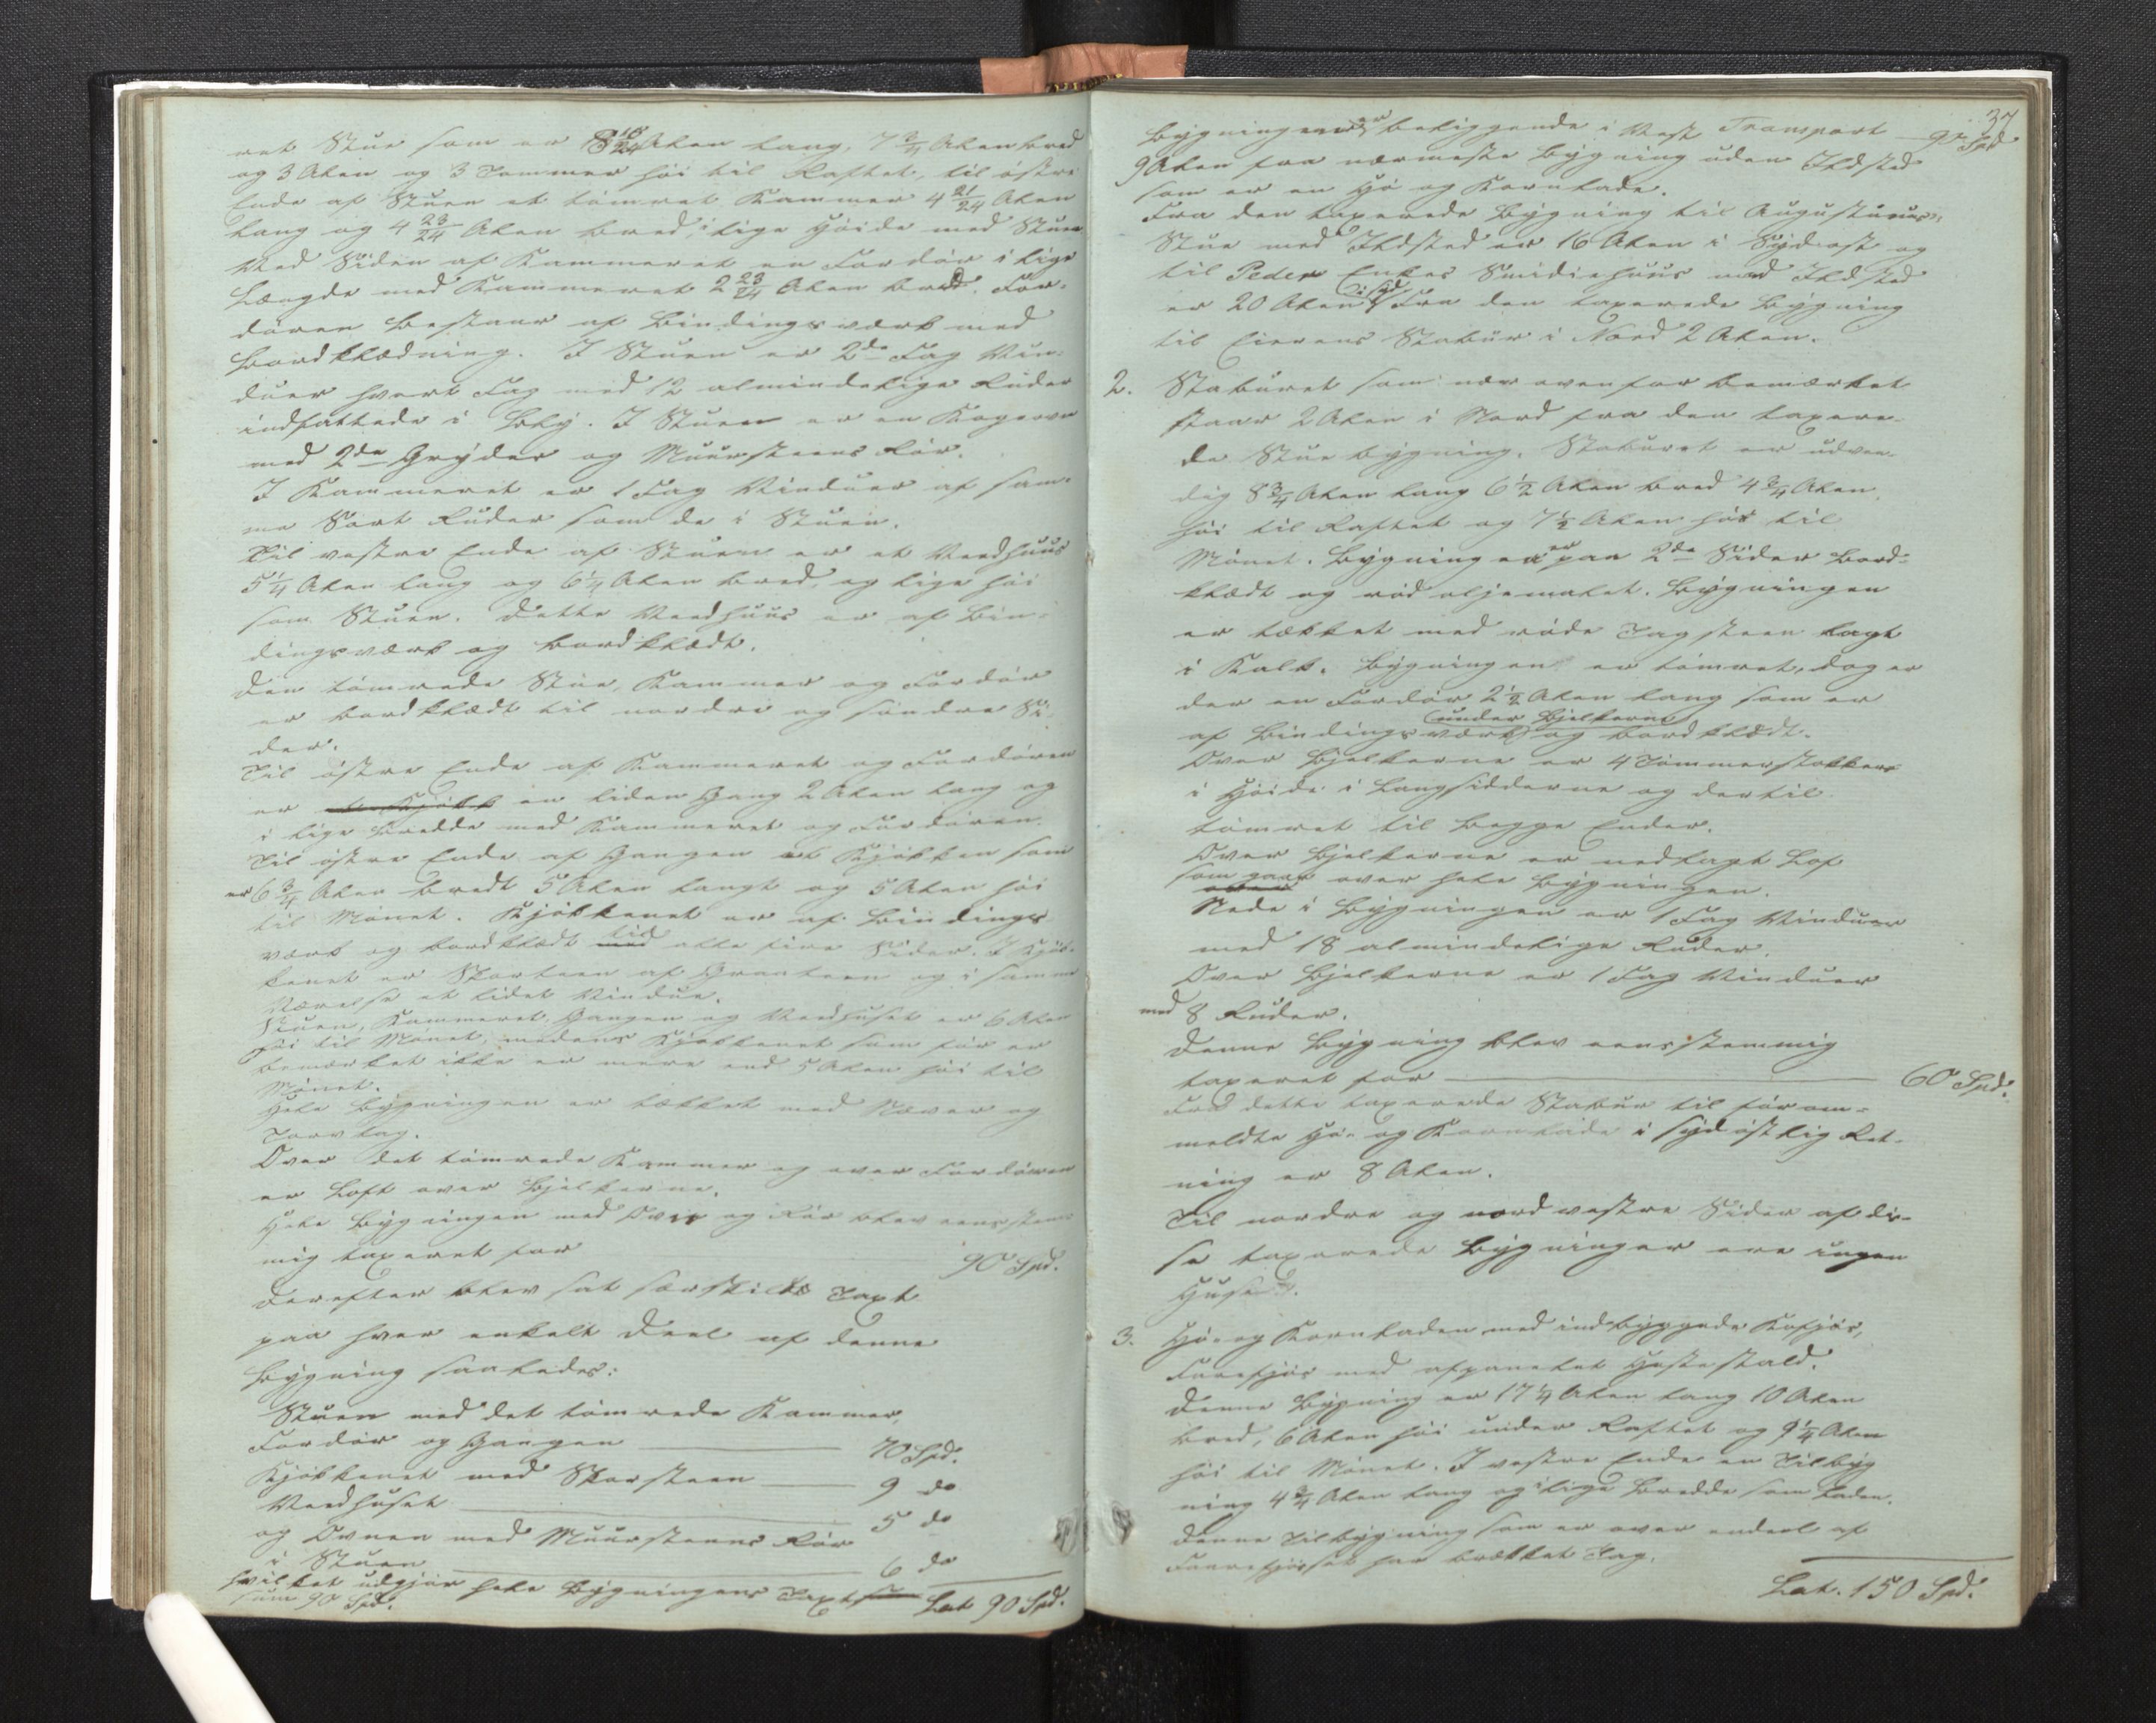 ret Stue som er 8 18/24 Alen lang, 7 3/4 Alen bred
og 3 Alen og 3 Tommer høi til Raftet, til østre
Ende af Stuen et tømret Kammer 4 21/24 Alen
lang og 4 23/24 Alen bred, i lige Høide med Stuen
Ved Siden af Kammeret en Fordør i lige
Længde med Kammeret 2 23/24 Alen bred. For-
døren bestaar af Bindingsværk med
Bordklædning. I Stuen er 2de Fag Vin-
duer hvert Fag med 12 almindelige Ruder
indfattede i Bly. I Stuen er en Kogeovn
med 2de Gryder og Muursteens Rør.
I Kammeret er 1 Fag Vinduer af sam-
me Sort Ruder som de i Stuen.
Til vestre Ende af Stuen er et Vedhuus
5 1/4 Alen lang og 6 1/4 Alen bred, og lige høi
som Stuen. Dette Vedhuus er af Bin-
dingsværk og bordklædt.
Den tømrede Stue, Kammer og Fordør
er bordklædt til nordre og søndre Si-
der.
Til østre Ende af Kammeret og Fordøren
er et Kjøkk en liden Gang 2 Alen lang og
i lige Bredde med Kammeret og Fordøren.
Til østre Ende af Gangen et Kjøkken som
er 6 3/4 Alen bredt 5 Alen langt og 5 Alen høi
til Mønet. Kjøkkenet er af Bindings
værk og bordklædt med til alle fire Sider. I Kjøk-
kenet er Skorsteen af Graasteen og i samme
Værelse et lidet Vindue.
Stuen, Kammeret, Gangen og Vedhuset er 6 Alen
høi til Mønet, medens Kjøkkenet som før er
bemærket ikke er mere end 5 Alen høi til
Mønet.
Hele Bygningen er tækket med Næver og
Torvtag.
Over det tømrede Kammer og over Fordøren
er Loft over Bjelkerne.
Hele Bygningen med Ovn og Rør blev eensstem-
mig taxeret for 90 Spd.
Derefter blev sat særskilte Taxt
paa hver enkelt Deel af denne
Bygning saaledes:
Stuen med det tømrede Kammer,
Fordør og Gangen 70 Spd.
Kjøkkenet med Skorsteen 9 do
Vedhuset 5 do
og Ovnen med Muursteens Rør
i Stuen 6 do
hvilket udgjør hele Bygningens Taxt Lat 90 Spd.
sum 90 Spd.
37
Bygningen er beliggende i Vest Transport 90 Spd
9 Alen fra nærmeste Bygning uden Ildsted
som er en Hø og Kornlade.
Fra den taxerede Bygning til Augustinus's
Stue med Ildsted er 16 Alen i Sydost og
til Peder Enkes Smidiehuus med Ildsted
er 20 Alen i Syd Fra den taxerede Bygning
til Eierens Stabur i Nord 2 Alen.
2. Staburet som nær ovenfor bemærket
staar 2 Alen i Nord fra den taxere-
de Stuebygning. Staburet er udven-
dig 8 3/4 Alen lang 6 1/2 Alen bred 4 3/4 Alen
høi til Raftet og 7 1/2 Alen høi til
Mønet. Bygningen er paa 2de Sider bord-
klædt og rød oljemalet. Bygningen
er tækket med røde Tagsteen lagt
i Kalk. Bygningen er tømret, dog er
der en Fordør 2 1/2 Alen lang som er
under Bjelkerne
af Bindingsværk og bordklædt.
Over Bjelkerne er 4 Tømmerstokker
i Høide i Langsidderne og dertil
tømret til begge Ender.
Over Bjelkerne er nedlagt Lof
som gaar over hele Bygningen.
Nede i Bygningen er 1 Fag Vinduer
med 18 almindelige Ruder.
Over Bjelkerne er 1 Fag Vinduer
med 8 Ruder.
Denne Bygning blev eensstemmig
taxeret for 60 Spd.
Fra dette taxerede Stabur til førom-
meldte Hø- og Kornlade i sydøstlig Ret-
ning er 8 Alen.
Til nordre og nordvestre Sider af dis-
se taxerede Bygninger ere ingen
Huse.
3. Hø- og Kornladen med indbyggede Kofjøs,
Faarefjøs med afpanelet Hestestald.
Denne Bygning er 17 1/4 Alen lang 10 Alen
bred, 6 Alen høi under Raftet og 9 1/4 Alen
høi til Mønet. I vestre Ende en Tilbyg
ning 4 3/4 Alen lang og i lige Bredde som Laden.
Denne Tilbygning som er over endeel af
Faarefjøset har brækket Tag.
Lat. 150 Spd.